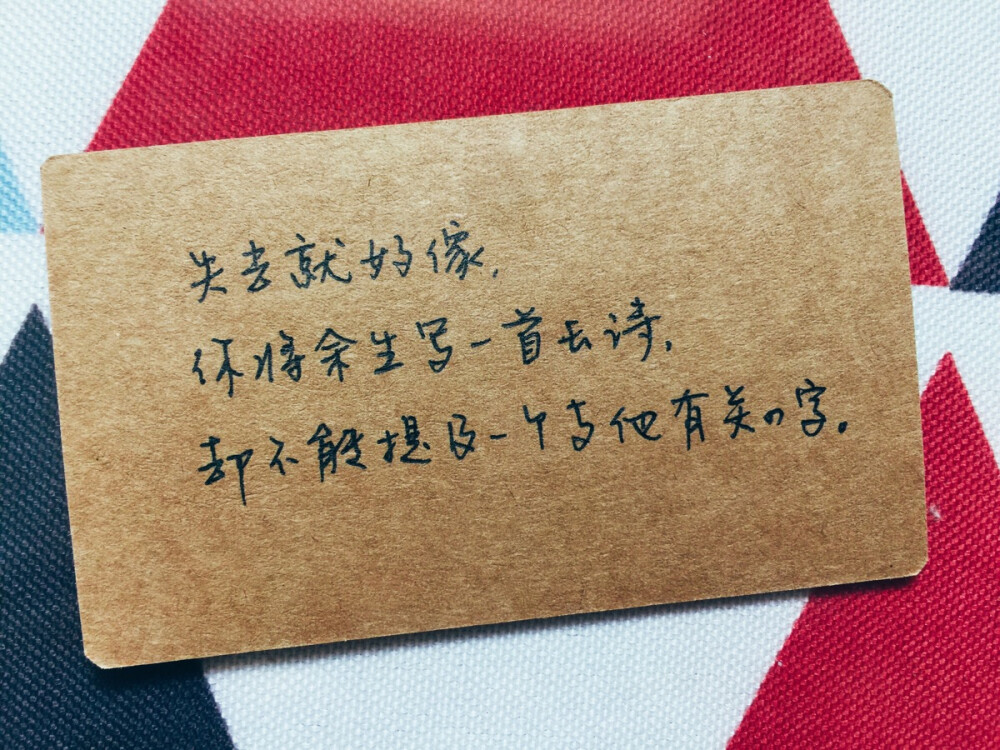 失去就好像,
你将余生写一首长诗,
却不能提及一个与他有关的字。